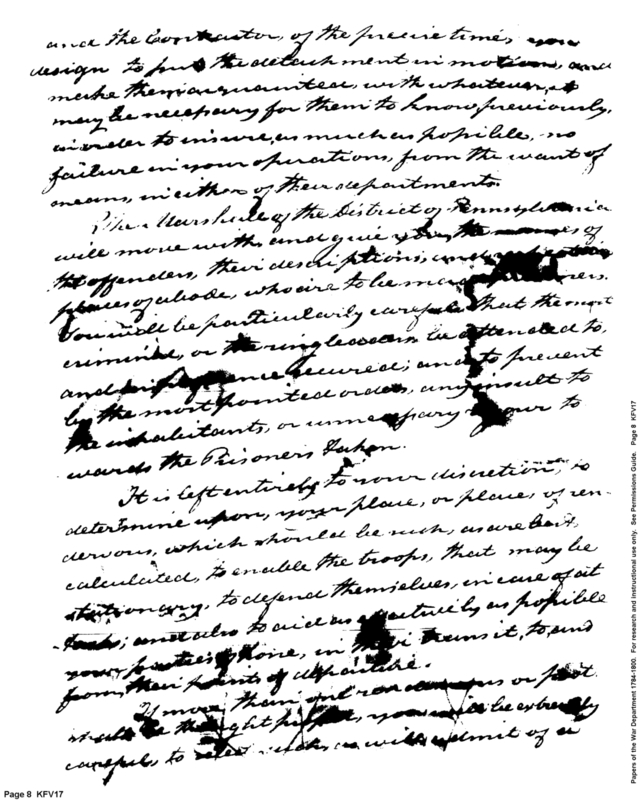 and the Contractor, of the precise time, you
design to put the detachment in motion, and
make them acquainted, with whatever, it
may be necessary for them to know previously,
in order to insure, as much as possible, no
failure in your operations, from the want of
means, in either of their departments.
The Marshall of the District of Pennsylvania
will move with, and give you, the names of
the offenders, their descriptions, and
places of abode, who are to be made prisoners.
You will be particularly careful that the most
criminal, or the ringleaders be attended to,
and secured; and to prevent
by the most pointed orders, any insult to
the inhabitants, or unnecessary to
wards the Prisoners taken.
It is left entirely to your discretion, to
determine upon, your place, or places of ren-
dezvous, which should be such, as are best,
calculated, to enable the troops, that may be
stationary, to defend themselves, in case of at
tack; and also to aid as effectively as possible
your parties of horse, in their transit, to and
from their points of departure.
If more than one rendezvous or post
should be thought proper, you will be extremely
careful, to select such, as will admit of a
Page 8 KFV17
Papers of the War Department 1784-1800. For research and instructional use only. See Permissions Guide. Page 8 KFV17